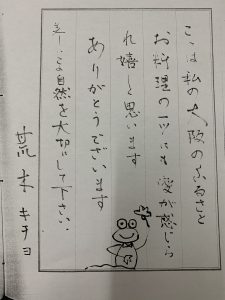 ここは私の大阪のふるさと
お料理の一つにも愛が感じら
れ嬉しく思います
ありがとうございます
美しい自然を大切にして下さい
荒木キチヨ